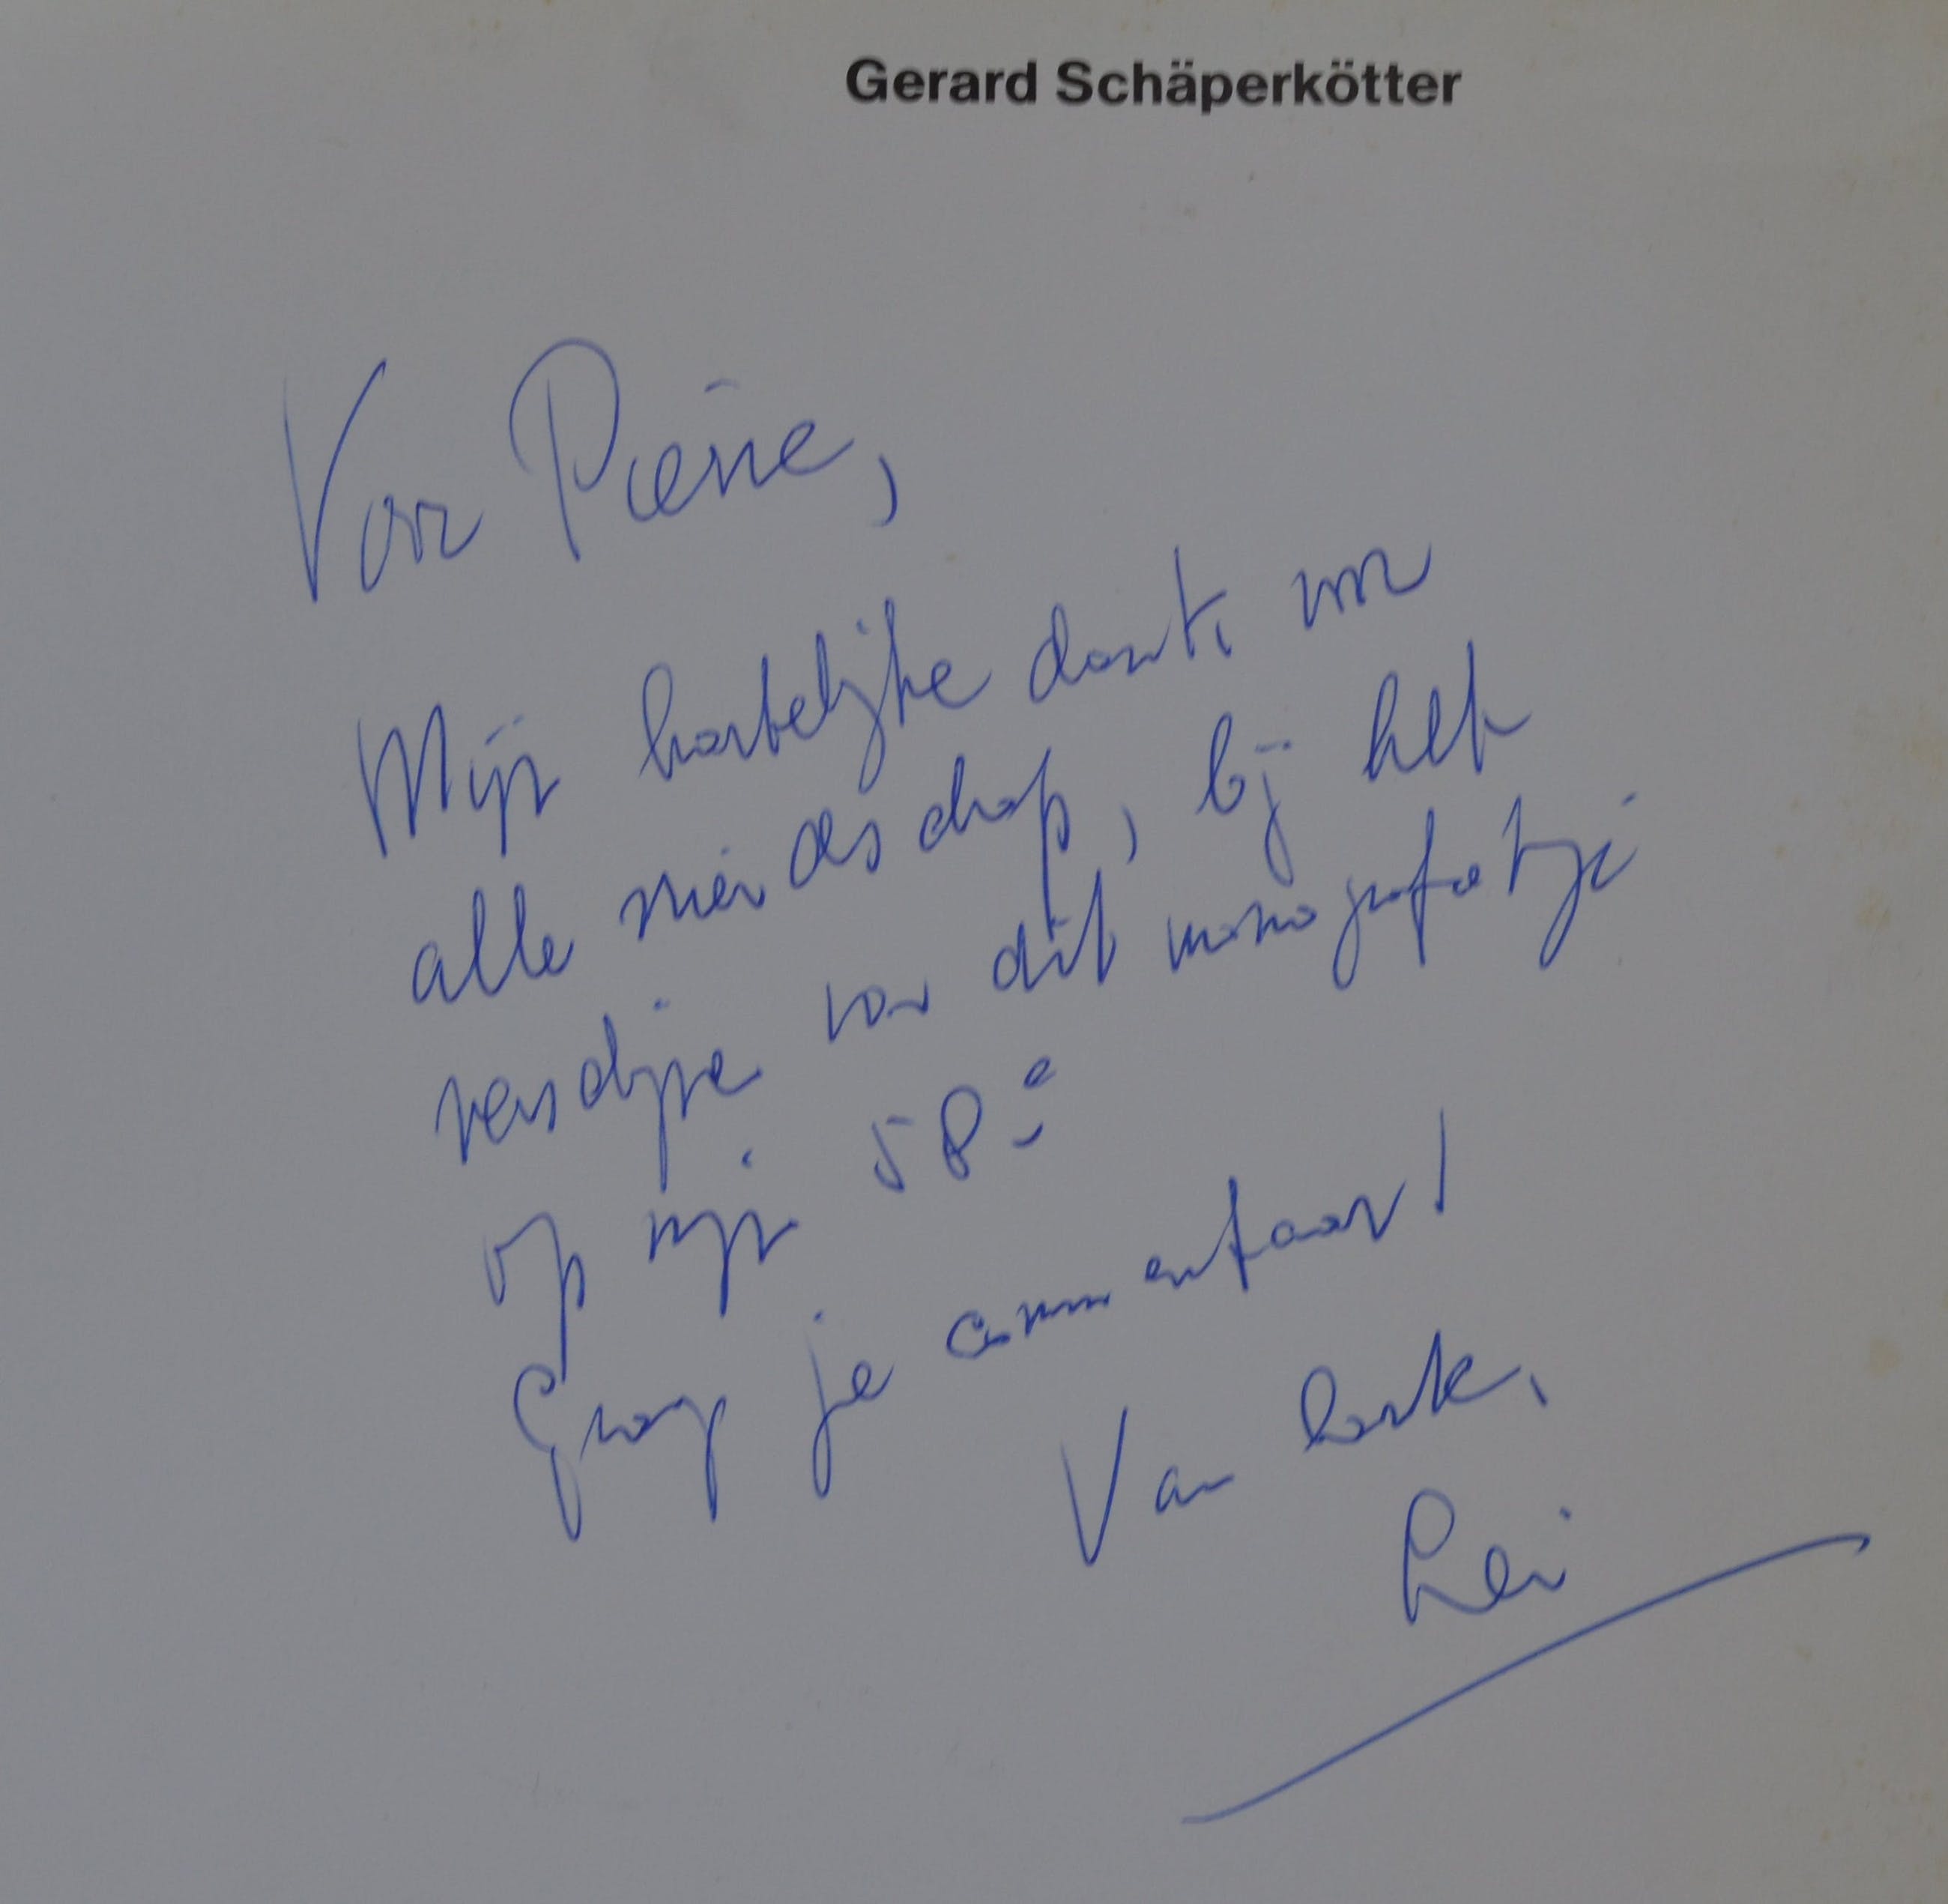 Gerard Schäperkötter
Voor Pierre,
Mijn hartelijke dank, voor
alle vriendschap, bij het
verschijnen van dit monografietje
op mijn 58e
Graag je commentaar!
Van harte,
Lei